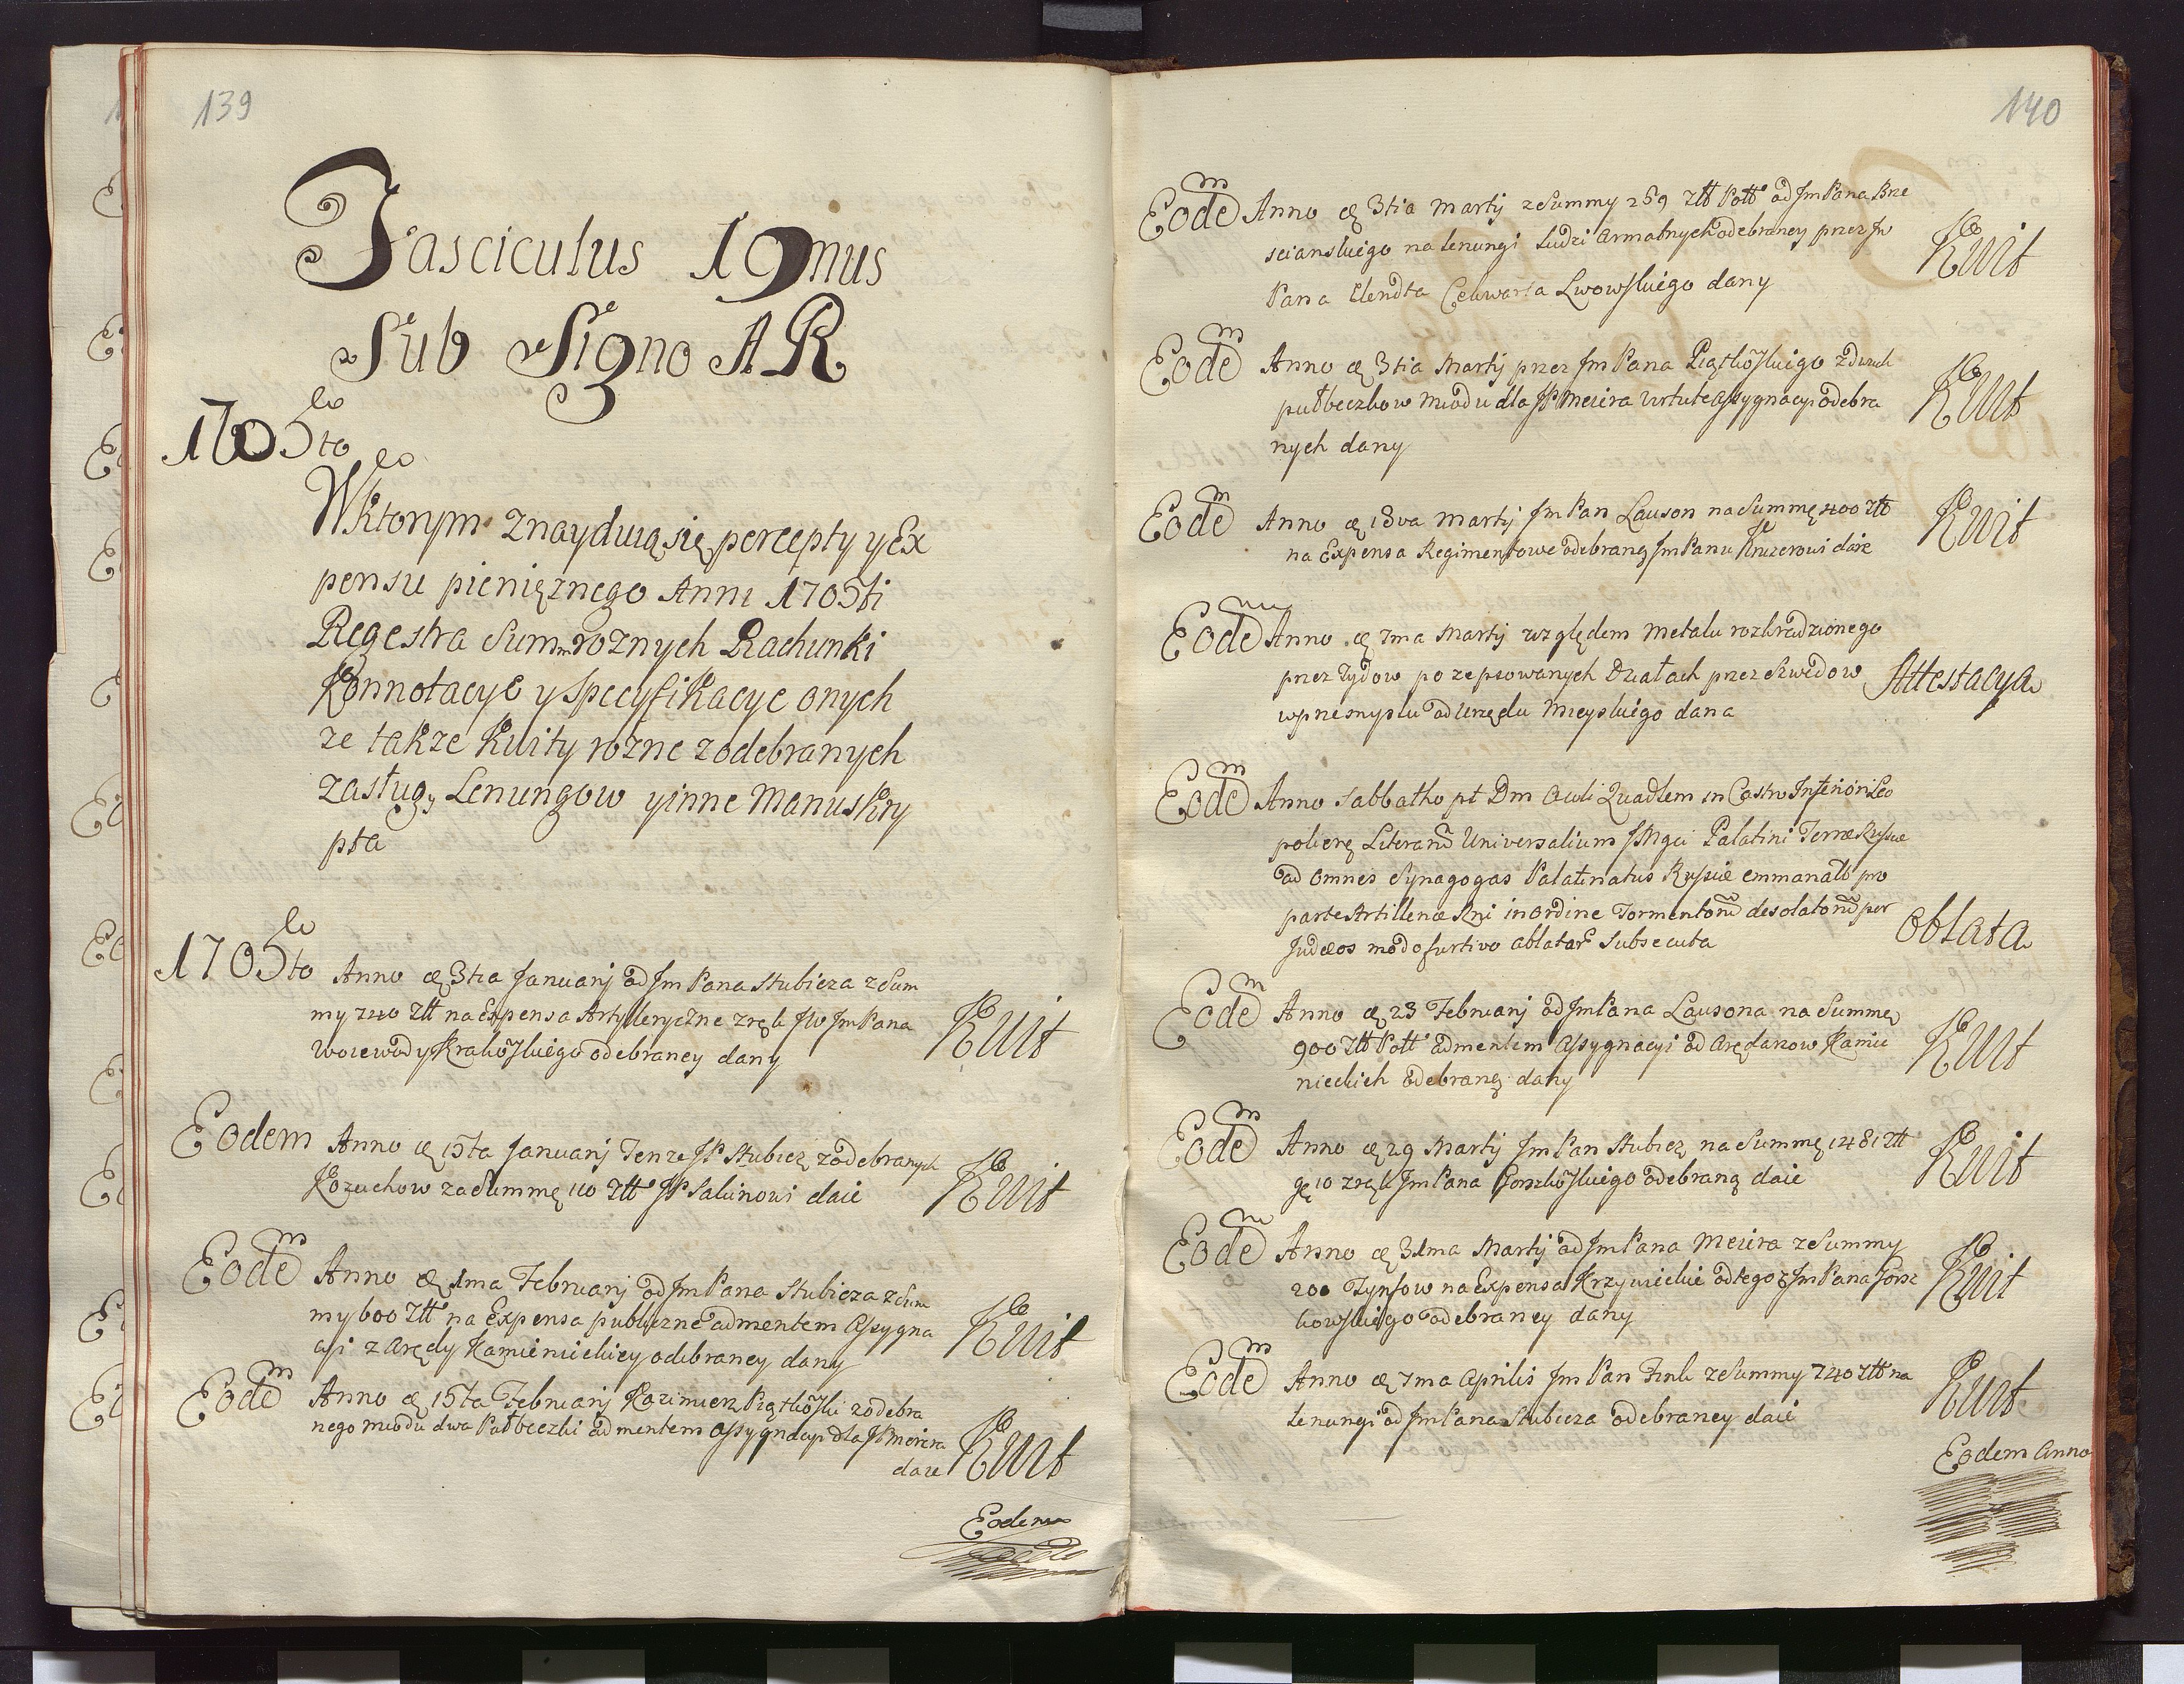 139
Fasciculus 19nus
Sub Signo AR
1705to
W ktorym znayduią się percepty y Ex
pensu pieniężnego Anni 1705ti
Regestra Summ roznych Rachunki
Konnotacye y Specyfikacye onych
ze takze Kwity rozne z odebranych
zasług, Lenungow y inne Manuskry
pta
1705to Anno æ 3tia Januarij od Jm Pana Stubicza z Sum
my 740 Ztt na Expensa Artylleryczne z rąk JW Jm Pana
Woiewody Krakoskiego odebraney dany Kwit
Eodem Anno æ 15ta Januarij Tenze JP Stubicz z odebranych
Kozuchow za Summę 110 Ztt JP Salinowi daie Kwit
Eodem Anno æ 1ma Februarij od Jm Pana Stubicza z Sum
my 600 Ztt na Expensa publiczne ad mentem Assygna
cyi z Arędy Kamienieckiey odebraney dany Kwit
Eodem Anno æ 15ta Februarij Kazimierz Piątkoski z odebra
nego miodu dwa Pułbeczki ad mentem Assygnacyi dla JP Meiera
daie Kwit
Eodem
140
Eodem Anno æ 3tia Martij z Summy 269 Ztt Pott od Jm Pana Brze
scianskiego na lenungi ludzi armatnych odebraney przez Jm
Pana Elendta Ceuwarta Lwowskiego dany Kwit
Eodem Anno æ 3tia Martij przez Jm Pana Piątkoskiego z dwuch
pułbeczkow miodu dla JP Meiera virtute Assygnacyi odebra
nych dany Kwit
Eodem Anno æ 18va Martij Jm Pan Lauson na Summę 400 Ztt
na Expensa Regimentowe odebraną Jm Panu Knizerowi daie Kwit
Eodem Anno æ 7ma Martij względem metalu rozkradzionego
przez Zydow po zepsowanych Działach przez Szwedow
w Przemyslu od Urzędu Mieyskiego dana Attestacya
Eodem Anno Sabbatho pt Dm Oculi Quadlem in Castro Inferiori Leo
poliens Literarum Universalium JMgci Palatini Terræ Russiæ
ad omnes Synagogas Palatinatus Russiæ emmanatt pro
parte Artilleriæ Rni in ordine Tormentorum desolatorum per
Judæos modo furtivo ablatar Subsecuta Oblata
Eodem Anno æ 23 Februarij od Jm Pana Lausona na Summę
900 Ztt Pott ad mentem Assygnacyi od Arędarzow Kamie
nieckich odebraną dany Kwit
Eodem Anno æ 29 Martij Jm Pan Stubicz na Summę 1481 Ztt
gr 10 z rąk Jm Pana Gorzkoskiego odebraną daie Kwit
Eodem Anno æ 31ma Martij od Jm Pana Meiera z Summy
200 Tynfow na Expensa Krzywieckie od tegoz Jm Pana Gorz
kowskiego odebraney dany Kwit
Eodem Anno æ 7ma Aprilis Jm Pan Fink z Summy 740 Ztt na
Lenungi od Jm Pana Stubicza odebraney daie Kwit
Eodem Anno